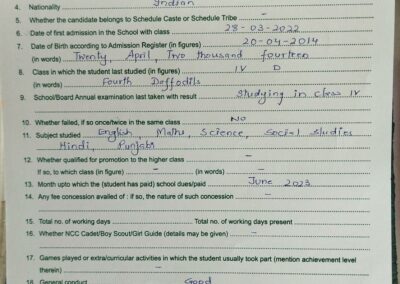 4. Nationality Indian
5. Whether the candidate belongs to Schedule Caste or Schedule Tribe -
6. Date of first admission in the School with class 28-03-2022
7. Date of Birth according to Admission Register (in figures) 20-04-2014
(in words) Twenty, April, Two thousand fourteen
8. Class in which the student last studied (in figures) IV D
(in words) Fourth Daffodils
9. School/Board Annual examination last taken with result Studying in class IV
10. Whether failed, if so once/twice in the same class NO
11. Subject studied English, Maths, Science, Social Studies
Hindi, Punjabi
12. Whether qualified for promotion to the higher class -
If so, to which class (in figure) - (in words) -
13. Month upto which the (student has paid) school dues/paid June 2023
14. Any fee concession availed of : If so, the nature of such concession -
15. Total no. of working days Total No. of working days present
16. Whether NCC Cadet/Boy Scout/Girl Guide (details may be given) -
17. Games played or extra/curricular activities in which the student usually took part (mention achievement level
therein) -
18. General conduct Good